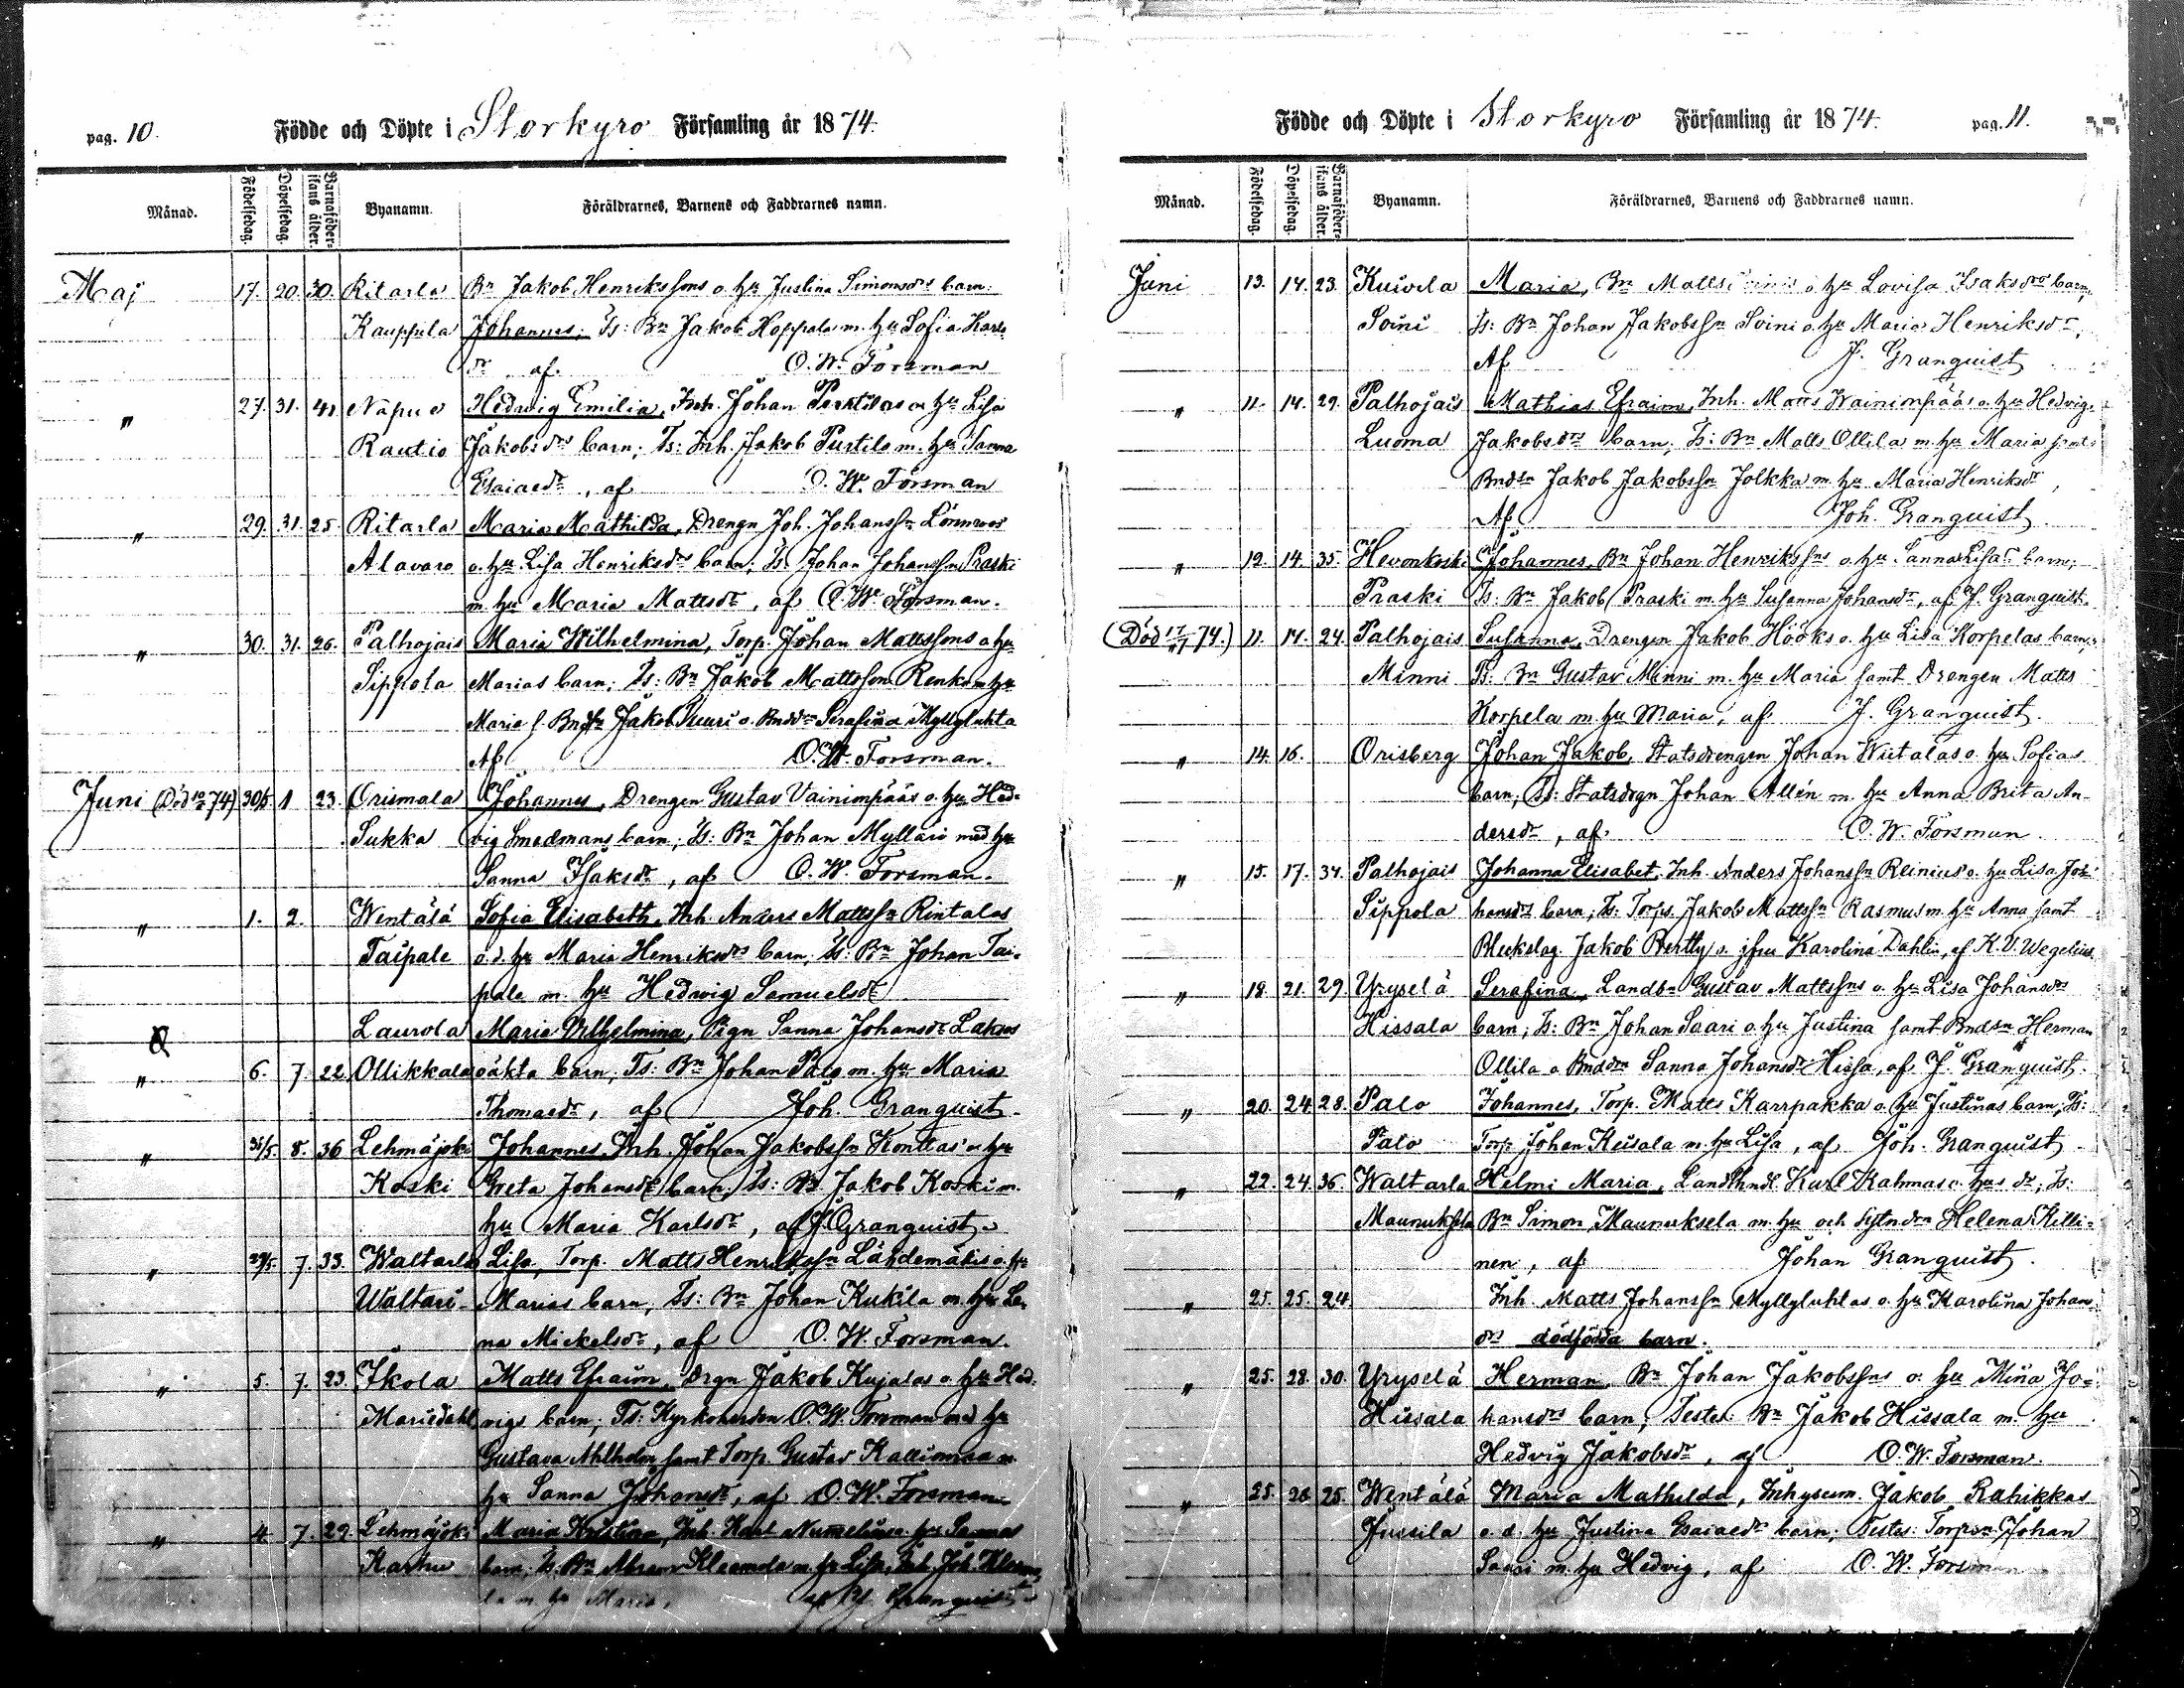 pag. 10.
Födde och Döpte i Storkyro Församling år 1874.
Månad. Födelsedag. Döpelsedag. Barnaföderskans ålder. Byanamn. Föräldrarnes, Barnens och Faddrarnes namn.
Maj 17. 20. 30. Ritarla Bn Jakob Henrikssons o. hu Justina Simonsdrs barn:
Kauppila Johannes; Ts: Bn Jakob Hoppala m. hu Sofia Karls
dr af. O. W. Forsman
" 27. 31. 41. Napuo Hedwig Emilia, Inh. Johan o hu Lisa
Rautio Jakobsdrs barn; Ts: Inh. Jakob Purtilo m. hu Sanna
Esaiaedr, af O. W. Forsman
" 29. 31. 25. Ritarla Maria Mathilda, Drengn Joh. Johanssn Lönnroos
Alavaro o. hu Lisa Henriksdrs barn; Ts. Johan Johanssn Praski
m. hu Maria Mattsdr, af O. W. Forsman.
" 30. 31. 26. Palhojais Maria Wilhelmina, Torp. Johan Mattssons o hu
Sippola Marias barn; Ts: Bn Jakob Mattsson Renko m hu
Maria s. Bndsn Jakob Suuri o. Bnddr Serafina Myllyluhta
Af O. W. Forsman.
Juni (Död 74) 30/5 1 23. Orismala Johannes, Drengen Gustav Vainimpääs o. hu Hed-
Sukka vig Smedmans barn; Ts: Bn Johan Myllari med hu
Sanna Isaksdr, af O. W. Forsman.
" 1. 2. Wentälä Sofia Elisabeth, Inh Anders Mattssn Rintalas
Taipale o. d. hu Maria Henriksdrs barn; Ts: Bn Johan Tai-
pale m. hu Hedwig Samuelsdr
Laurola Maria Vilhelmina, Pign Sanna Johansdr Lahees
" 6. 7 22. Ollikkala oäkta barn; Ts: Bn Johan Palo m. hu Maria
Thomaedr, af Joh. Granquist.
" 31/5. 8. 36 Lehmäjoki Johannes, Inh. Johan Jakobssn Konttas o hu
Koski Greta Johansdr barn; Ts: Bn Jakob Koski m.
hu Maria Karlsdr, af J. Granquist.
" 29/5. 7. 33. Waltarla Lisa, Torp. Matts Henrikssn Lähdemäkis o. hu
Waltari Marias barn, Ts: Bn Johan Kukila m. hu Le-
na Mickelsdr, af O. W. Forsman.
" 5. 7. 23. Ikola Matts Efraim, Drgn Jakob Kujalas o. hu Hed-
Mariedahl vigs barn; Ts: Kyrkoherden O. W. Forsman med hu
Gustava Ahlholm samt Torp. Gustav Kalliomaa m
hu Sanna Johansdr, af O. W. Forsman
" 4. 7. 29. Lehmäjoki Maria Kristina, Inh. Karl Numelins o. hu Sannas
Karhu barn; Ts. Bn Abram Kleemola m. hu Lisa, Inh. Joh. Kleemo
la m. hu Maria, af J. Granquist
Födde och Döpte i Storkyro Församling år 1874. pag. 11.
Månad. Födelsedag. Döpelsedag. Barnaföderskans ålder. Byanamn. Föräldrarnes, Barnens och Faddrarnes namn.
Juni 13. 14. 23. Kuivila Maria, Bn Matts o. hu Lovisa Isaksdrs barn,
Soini Ts: Bn Johan Jakobssn Soini o. hu Maria Henriksdr,
Af J. Granquist
" 11. 14. 29. Palhojais Mathias Efraim, Inh. Matts Wainimpääs o. hu Hedvig
Luoma Jakobsdrs barn; Ts: Bn Matts Ollila m. hu Maria samt
Bndsn Jakob Jakobssn Jolkka m. hu Maria Henriksdr,
Af Joh. Granquist.
" 12. 14. 35. Hevonkoski Johannes, Bn Johan Henrikssns o. hu Sanna Lisas barn;
Praski Ts: Bn Jakob Praski m. hu Susanna Johansdr, af J. Granquist.
(Död 17/7 74.) 11. 14. 24. Palhojais Susanna, Drengen Jakob Hööks o. hu Lisa Korpelas barn;
Minni Ts: Bn Gustav Minni m. hu Maria samt Drengen Matts
Korpela m. hu Maria, af J. Granquist.
" 14. 16. Orisberg Johan Jakob, Statsdrengen Johan Wiitalas o. hu Sofias
barn; Ts: Statsdrgn Johan Allén m. hu Anna Brita An-
dersdr, af O. W. Forsman.
" 15. 17. 34. Palhojais Johanna Elisabet, Inh. Anders Johanssn Reinius o. hu Lisa Jo-
Sippola hansdrs barn; Ts: Torp. Jakob Mattssn Rasmus m. hu Anna samt
Bleckslag. Jakob Pertty o. jfru Karolina Dahlin, af K. V. Wegelius.
" 18. 21. 29. Yryselä Serafina, Landbn Gustav Mattssns o. hu Lisa Johansdrs
Hissala barn; Ts: Bn Johan Saari o. hu Justina samt Bndsn Herman
Ollila o Bnddr Sanna Johansdr Hissa, af J. Granquist.
" 20. 24. 28. Palo Johannes, Torp. Matts Karrpakka o. hu Justinas barn; Ts:
Palo Torp. Johan Keisala m. hu Lisa, af Joh. Granquist.
" 22. 24. 36. Waltarla Helmi Maria, Landthndl. Karl Kahmas o. hus dr; Ts:
Maunuksela Bn Simon Maunuksela m. hu och Sytndrn Helena Killi-
nen, af Johan Granquist.
" 25. 25. 24 Inh. Matts Johanssn Myllyluhtas o. hu Karolina Johans
drs dödfödda barn.
" 25. 28. 30. Yryselä Herman, Bn Johan Jakobssns o. hu Mina Jo-
Hissala hansdrs barn; Testes Bn Jakob Hissala m. hu
Hedvig Jakobsdr, af O. W. Forsman.
" 25. 26. 25. Wentälä Maria Mathilda, Inhysem. Jakob Rahikkas
Jussila o. d. hu Justina Esaiaedrs barn; Testes: Torpsn Johan
Saari m. hu Hedvig, af O. W. Forsman